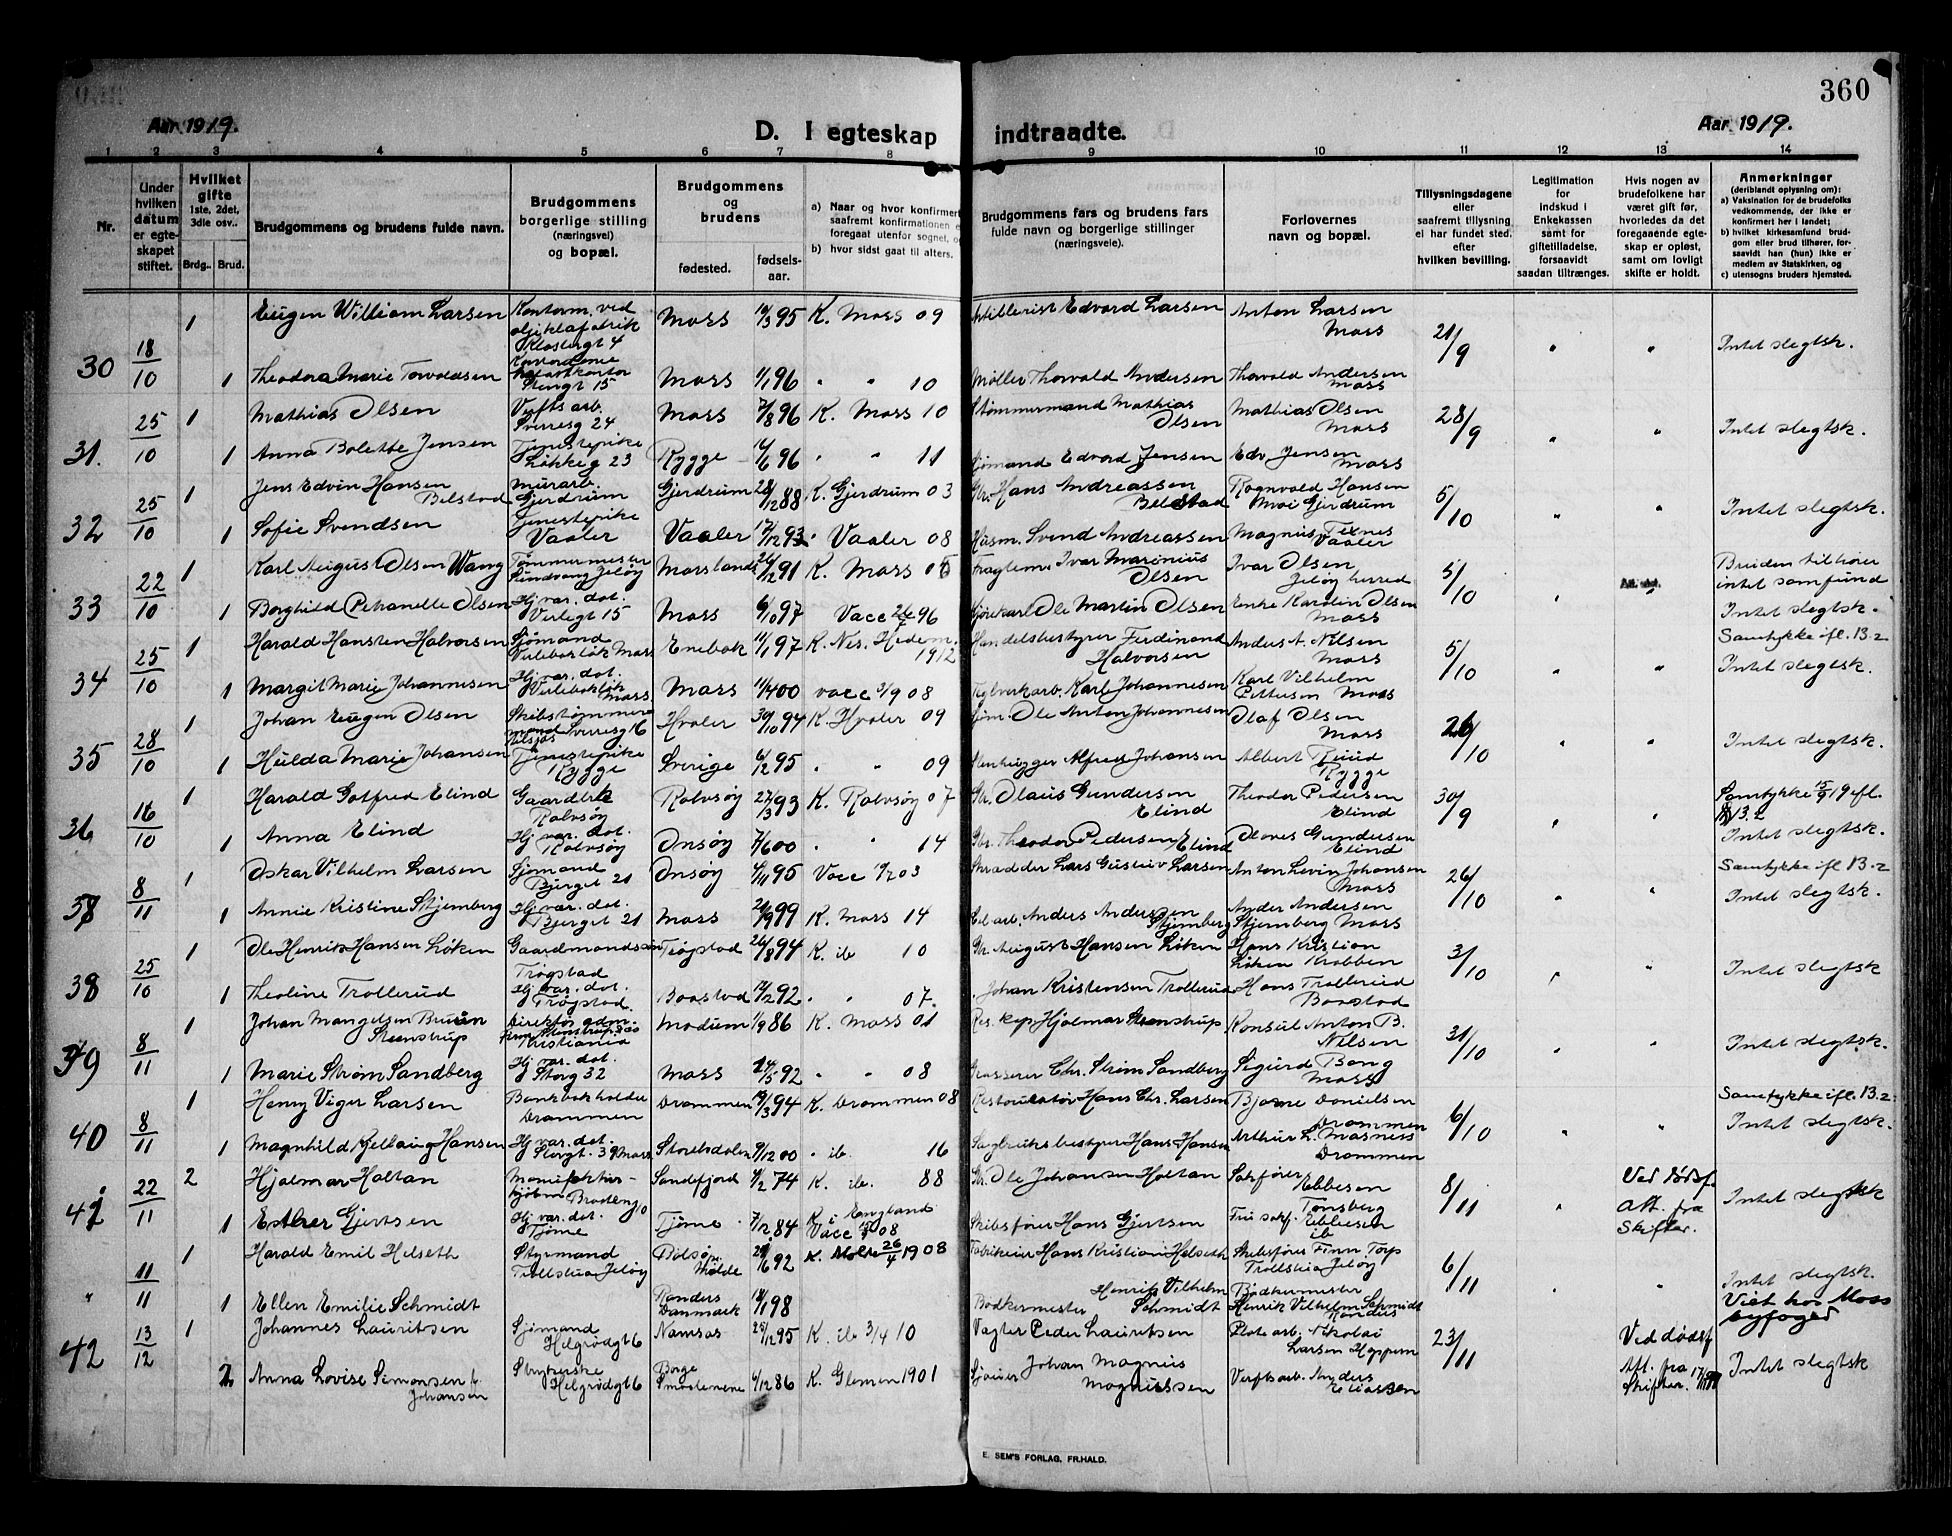 360
Aar 1919.
D. I egteskap indtraadte.
Aar 1919.
1 2 3 4 5 6 7 8 9 10 11 12 13 14
Nr.
Under hvilken datum er egteskapet stiftet.
Hvilket gifte 1ste, 2det, 3die osv..
Brdg.. Brud.
Brudgommens og brudens fulde navn.
Brudgommens borgerlige stilling (næringsvei) og bopæl.
Brudgommens og brudens
fødested.
fødselsaar.
a) Naar og hvor konfirmert
saafremt konfirmationen e
foregaat utenfor sognet, o
b) hvor sidst gaat til alters.
Brudgommens fars og brudens fars
fulde navn og borgerlige stillinger
(næringsveie).
Forlovernes
navn og bopæl.
Tillysningsdagene
eller
saafremt tillysning
ei har fundet sted.
efter
hvilken bevilling.
Legitimation
for
indskud i
Enkekassen
samt for
giftetilladelse,
forsaavidt
saadan tiltrænges.
Hvis nogen av
brudefolkene har
været gift før,
hvorledes da det
foregaaende egteskap er opløst,
samt om lovligt
skifte er holdt.
Anmerkninger
(deriblandt oplysning om):
a) Vaksination for de brudefolks
vedkommende, der ikke er
konfirmert her i landet;
b) hvilket kirkesamfund brudgom eller brud tilhører, forsaavidt han (hun) ikke er
medlem av Statskirken, og
c) utensogns bruders hjemsted.
30 18/10
1 Eugen William Larsen Klostergt 4 Moss 95 K. Moss 09 Edvard Larsen Anton Larsen Moss 21/9 Intet slegtsk.
1 Theodora Marie Torvaldsen Stengt 15 Moss 1/1 96 " " 10 Møller Thorvald Andersen Thorvald Andersen Moss
31. 25/10
1 Mathias Olsen Verftsarb. Sverresg 24 Moss 96 K. Moss 10 Tømmermand Mathias Olsen Mathias Olsen Moss 28/9 Intet slegtsk.
1 Anna Bolette Jensen Tjenestepike Løkkeg 23 Rygge 96 " " 11 Sjømand Edvard Jensen Edv Jensen Moss
32 25/10
1 Jens Edvin Hansen Belstad Murarb. Gjerdrum Gjerdrum 28/12 88 K. Gjerdrum 03 Gbr. Hans Andreassen Belstad Ragnvald Hansen Moe Gjerdrum 5/10 Intet slegtsk.
1 Sofie Svendsen Tjenestepike Vaaler Vaaler 17/12 93 " Vaaler 08 Husm. Svend Andreassen Magnus Texnes Vaaler
33 22/10
1 Karl August Olsen Wang Tømmermester Sundvang Jeløy Mosslandet 91 K. Moss 06 Ivar Maronius Olsen Ivar Olsen Jeløy herred 5/10 Bruden tilhører intet samfund
1 Borghild Petranelle Olsen Hj. vær. dat. Verlegt 15 Moss 6/10 97 Vacc 96 Ole Martin Olsen Enke Karolin Olsen Moss Intet slegtsk.
34 25/10
1 Harald Hansten Halvorsen Sjømand Verlebakløk Moss Enebak 11/1 97 K. Nes, Hedem. 1912 Handelsbestyrer Ferdinand Halvorsen Anders A. Nilsen Moss 5/10 Samtykke ifl. 13-2 Intet slegtsk.
1 Margit Marie Johannesen Hj. vær. dat. Verlebakløk Moss Moss 11/4 00 vacc 3/9 08 Karl Johannesen Karl Vilhelm Pettersen Moss
35 28/10
1 Johan Eugen Olsen Sverresg 16 Hvaler 30/10 94 K. Hvaler 09 Ole Anton Johannesen Olaf Olsen Moss 26/10 Intet slegtsk.
1 Hulda Marie Johansen Tjenestepike Rygge Sverige 6/12 95 " " 09 Stenhugger Alfred Johansen Albert Ruud Rygge
36 16/10
1 Harald Gotfred Elind Gaardbr Rolvsøy Rolvsøy 27/3 93 K. Rolvsøy 07 Gbr. Olaus Gundersen Elind Theodor Pedersen Elind 30/9 Samtykke 15/9 19 ifl. § 13.2
1 Anna Elind Hj. vær. dat. Rolvsøy Onsøy 7/6 00 " " 14 Gbr. Theodor Pedersen Elind Olaves Gundersen Elind Intet slegtsk.
37 8/11
1 Oskar Vilhelm Larsen Sjømand Bjerget 21 Onsøy 6/11 95 Vacc 03 Skrædder Lars Gustav Larsen Anton Levin Johansen Moss 26/10 Samtykke ifl 13-2 Intet slegtsk.
1 Annie Kristine Stjernberg Hj. vær. dat. Bjerget 21 Moss 99 K. Moss 14 Anders Andersen Stjernberg Ander Andersen Stjernberg Moss
38 25/10
1 Ole Henrik Hansen Løken Gaardmandsøn Trøgstad Trøgstad 26/8 94 K. ib 10 Gbr August Hansen Løken Hans Kristian Løken Krabben 3/10 Intet slegtsk
1 Theoline Trollerud Hj. vær. dat. Trøgstad Baastad 92 " " 07. Johan Kristensen Trollerud Hans Trollerud Baastad
39 8/11
1 Johan Mangelsen Bruun Steenstrup Direktør Kristiania Modum 1/9 86 K. Moss 01 Res. kap Hjalmar Steenstrup Konsul Anton B. Nilsen 31/10 Intet slegtsk.
1 Marie Strøm Sandberg Hj. vær. dat. Storg 32 Moss 24/5 92 " " 08 Grosserer Chr. Strøm Sandberg Sigurd Bang Moss
40 8/11
1 Henry Viger Larsen Bankbokholder Drammen Drammen 94 K. Drammen 08 Restauratør Hans Chr. Larsen Bjarne Danielsen Drammen 6/10 Samtykke ifl. 13-2 Intet slegtsk.
1 Magnhild Hansen Hj. vær. dat. Storgt. 39 Moss 9/12 00 " ib. 16 Sagbruksbestyrer Hans Hansen Arthur L. Masness Drammen
41 22/11
2 Hjalmar Holtan Sandefjord 4/2 74 K. ib. 88 Gbr. Ole Johansen Holtan Sakfører Ebbesen Tønsberg 8/11 Ved dødsf. Att. fra Skifter. Intet slegtsk
1 Esther Gjertsen Hj. vær. dat. Tjøme Tjøme 7/12 84 K i England Vacc 08 Skibsfører Hans Gjertsen Fru sakf. Ebbesen ib
" 11/11
1 Harald Emil Helseth Styrmand Trollstua Jeløy Bolsøy Molde 92 K. Molde 26/4 1908 Fabrikeier Hans Kristian Helseth Skibsfører Finn Torp Trollstua Jeløy 6/11 Intet slegtsk. Viet hos Moss byfoged
1 Ellen Emilie Schmidt Randers Danmark 98 Bødkermester Henrik Vilhelm Schmidt Bødkermester Henrik Vilhelm Schmidt Randers
42 13/12
1 Johannes Lauritsen Sjømand Helgrødgt 6 Namsos 95 K. ib 3/4 10 Vagter Peder Lauritsen Platearb. Nikolai Larsen 23/11 Ved dødsf Att. fra Skifter. Intet slegtsk
2 Anna Lovise Simonsen f. Johansen Strykerske Helgrødgt 6 Borge 6/12 86 K. Glemen 1901 Johan Magnus Magnussen Verftsarb. Anders Eliassen
E. SEM'S FORLAG, FR.HALD.